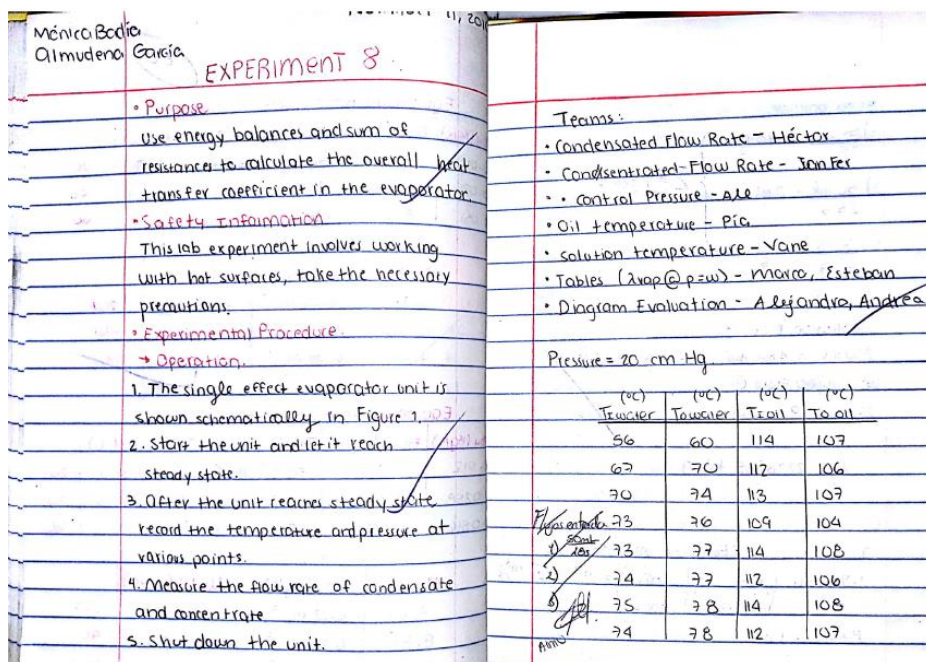 Mónica Badía
Almudena García
11, 201
EXPERIMENT 8
• Purpose
Use energy balances and sum of
resistances to calculate the overall heat
transfer coefficient in the evaporator.
• Safety Information
This lab experiment involves working
with hot surfaces, take the necessary
precautions.
• Experimental Procedure.
→ Operation.
1. The single effect evaporator unit is
shown schematically in Figure 1.
2. Start the unit and let it reach
steady state.
3. After the unit reaches steady state,
record the temperature and pressure at
various points.
4. Measure the flow rate of condensate
and concentrate
5. Shut down the unit.
Teams:
• Condensated Flow Rate - Héctor
• Condsentrated-Flow Rate - Janfer
• • Control Pressure - Ale
• Oil temperature - Pia
• solution temperature - Vane
• Tables (λvap @ p=w) - Marco, Esteban
• Diagram Evaluation - Alejandro, Andrea
Pressure = 20 cm Hg
(°C) (°C) (°C) (°C)
TIwater Towater TIoil To oil
56 60 114 107
67 70 112 106
70 74 113 107
73 76 109 104
1) 73 77 114 108
2) 74 77 112 106
3) 75 78 114 108
74 78 112 107